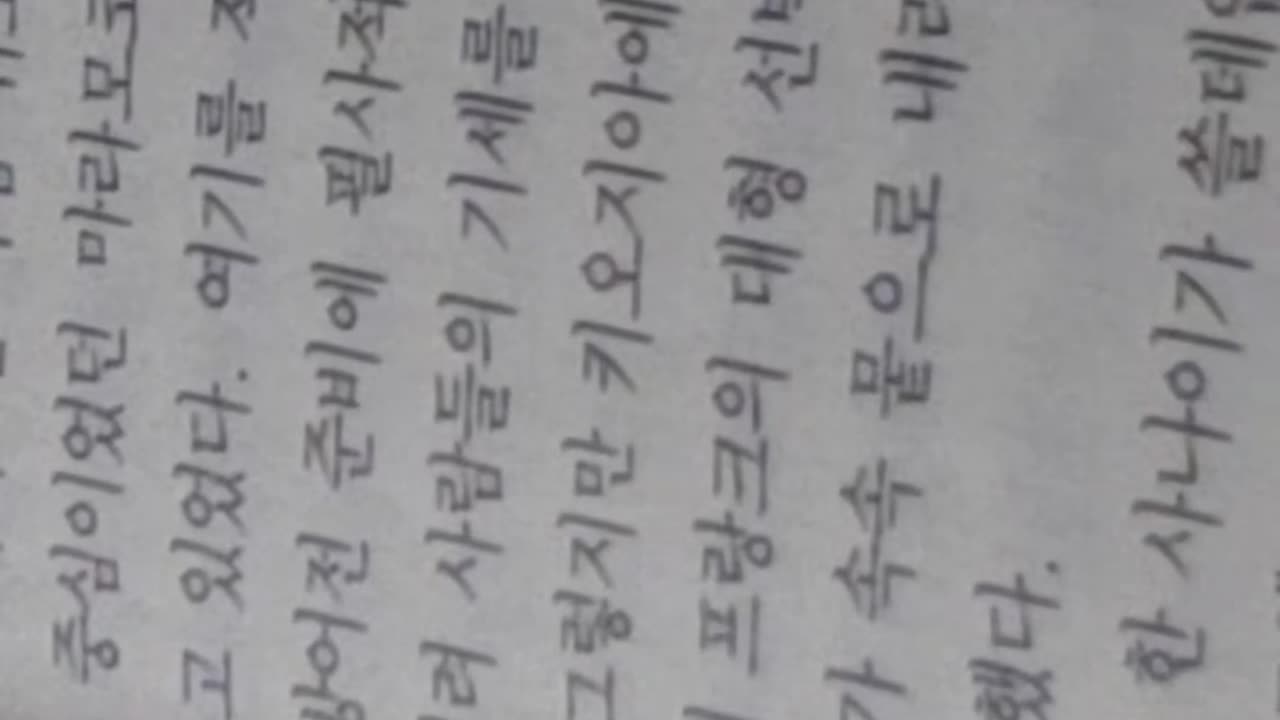 중심이었던 마라모
고 있었다. 여기를
방어전 준비에 필사적
려 사람들의 기세를
그렇지만 키요지아에
프랑크의 대형 선
가 속속 뭍으로 내려
했다.
한 사나이가 쓸데